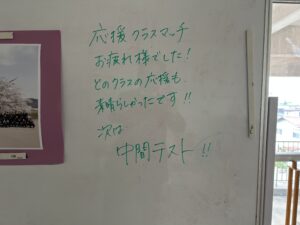 応援 クラスマッチ
お疲れ様でした!
どのクラスの応援も
素晴らしかったです!!
次は
中間テスト!!